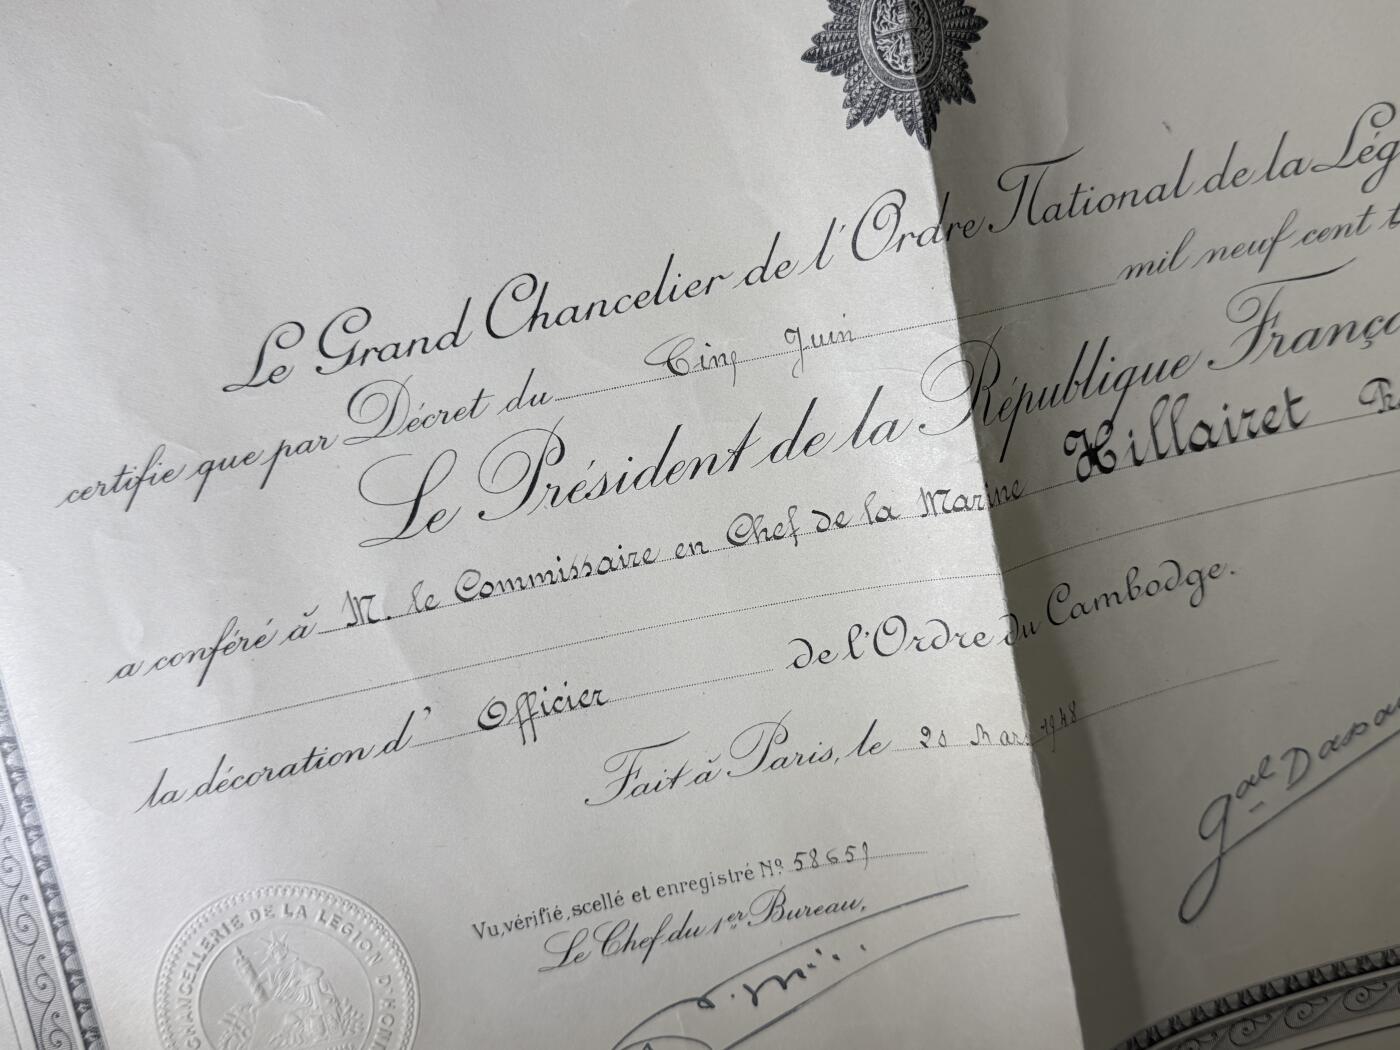 Le Grand Chancelier de l'Ordre National de la Lég
certifie que par Décret du Cinq Juin mil neuf cent t
Le Président de la République França
a conféré à M. le Commissaire en Chef de la Marine Hillairet
la décoration d' Officier de l'Ordre du Cambodge.
Fait à Paris, le Mars 1948
Gal
Vu, vérifié, scellé et enregistré Nº 58651
Le Chef du 1er Bureau,
CHANCELLERIE DE LA LEGION D'HONN